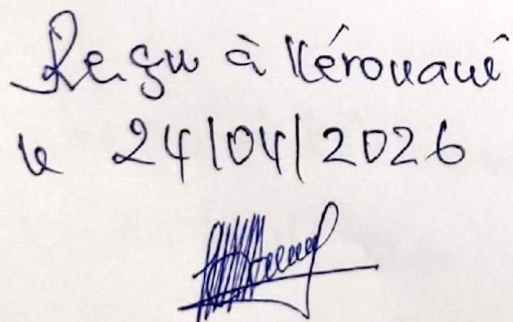 Reçu à Kérouané
le 24/04/2026